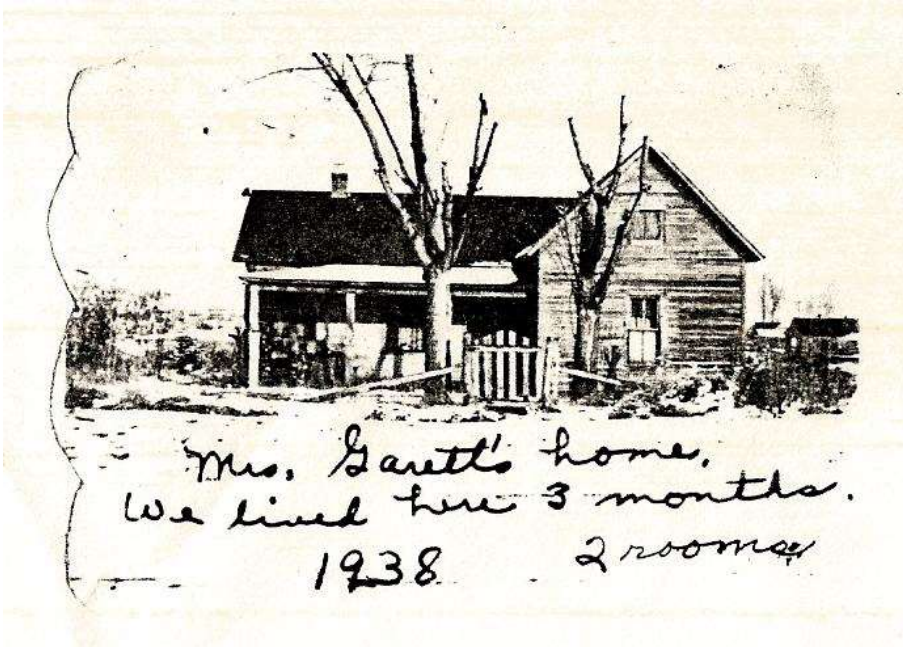 Mrs. Garett's home.
We lived here 3 months.
1938 2 rooms